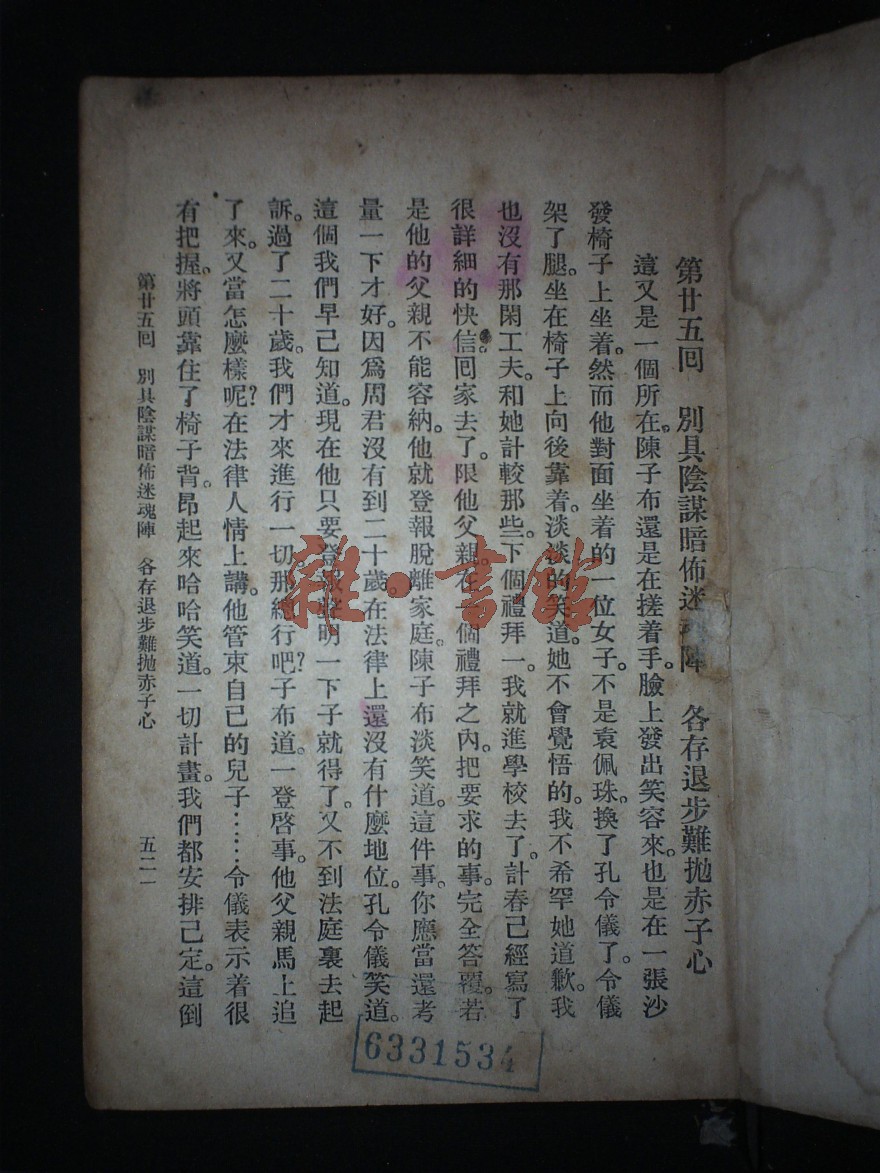 第廿五回　別具陰謀暗佈迷魂陣　各存退步難拋赤子心
這又是一個所在。陳子布還是在搓着手。臉上發出笑容來。也是在一張沙
發椅子上坐着。然而他對面坐着的一位女子。不是袁佩珠。換了孔令儀了。令儀
架了腿。坐在椅子上向後靠着。淡淡的笑道。她不會覺悟的。我不希罕她道歉。我
也沒有那閑工夫。和她計較那些。下個禮拜一。我就進學校去了。計春已經寫了
很詳細的快信。回家去了。限他父親。在一個禮拜之內。把要求的事。完全答覆。若
是他的父親不能容納。他就登報脫離家庭。陳子布淡笑道。這件事。你應當還考
量一下才好。因爲周君沒有到二十歲。在法律上還沒有什麼地位。孔令儀笑道。
這個我們早已知道。現在他只要登報聲明一下子就得了。又不到法庭裏去起
訴。過了二十歲。我們才來進行一切。那總行吧?子布道。一登啓事。他父親馬上追
了來。又當怎麼樣呢?在法律人情上講。他管束自己的兒子……令儀表示着很
有把握。將頭靠住了椅子背。昂起來哈哈笑道。一切計畫。我們都安排已定。這倒
第廿五回　別具陰謀暗佈迷魂陣　各存退步難拋赤子心
五二一
雜·書館
6331534